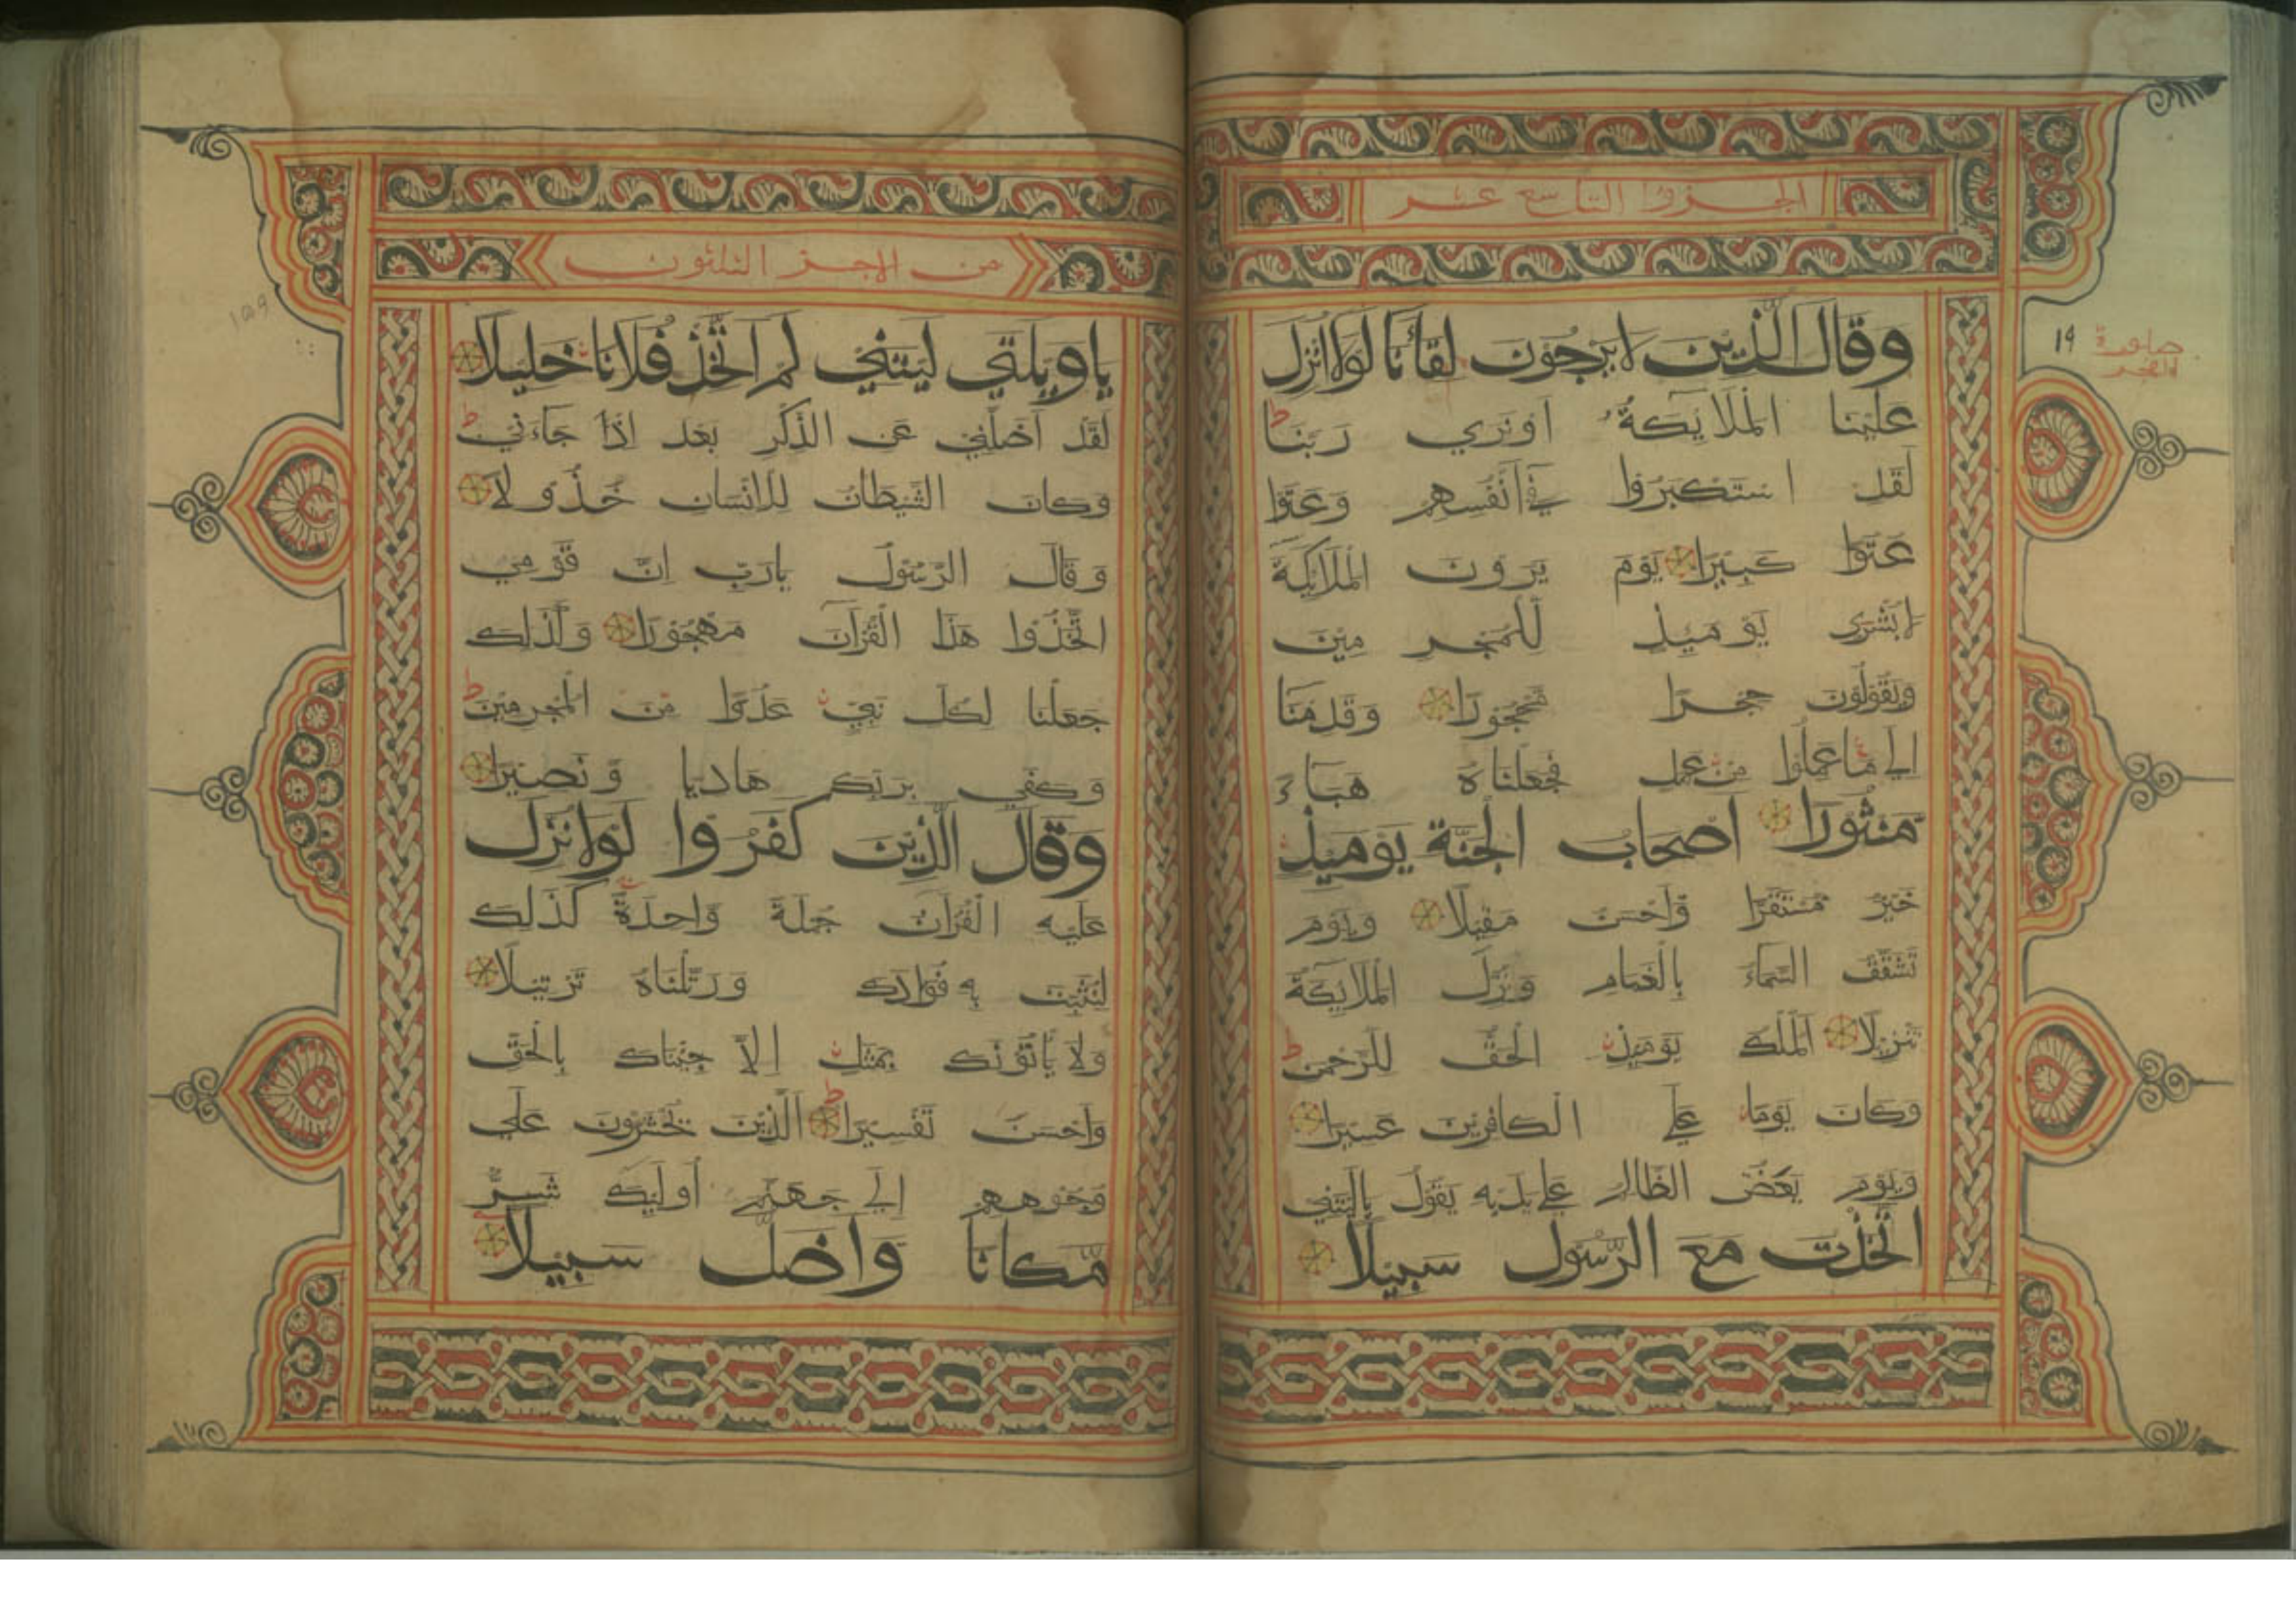 الجزوا التاسع عشر
وَقَالَ الَّذِيْنَ لَا يَرْجُوْنَ لِقَائَنَا لَوْلَا اُنْزِلَ
عَلَيْنَا الْمَلَايِكَةُ اَوْ نَرَي رَبَّنَا ط
لَقَدِ اسْتَكْبَرُوْا فِيْ اَنْفُسِهِمْ وَعَتَوْا
عَتَوْا كَبِيْرًا يَوْمَ يَرَوْنَ الْمَلَايِكَةَ
لَا بُشْرٰى يَوْمَيِٕذٍ لِّلْمُجْرِمِيْنَ
وَيَقُوْلُوْنَ حِجْرًا مَّحْجُوْرًا وَقَدِمْنَا
اِلَي مَا عَمِلُوْا مِنْ عَمَلٍ فَجَعَلْنَاهُ هَبَاءً
مَّنْثُوْرًا اَصْحَابُ الْجَنَّةِ يَوْمَيِٕذٍ
خَيْرٌ مُّسْتَقَرًّا وَّاَحْسَنُ مَقِيْلًا وَيَوْمَ
تَشَقَّقُ السَّمَاءُ بِالْغَمَامِ وَنُزِّلَ الْمَلَايِكَةُ
تَنْزِيْلًا اَلْمُلْكُ يَوْمَيِٕذٍ الْحَقُّ لِلرَّحْمٰنِ ط
وَكَانَ يَوْمًا عَلَي الْكَافِرِيْنَ عَسِيْرًا
وَيَوْمَ يَعَضُّ الظَّالِمُ عَلَي يَدَيْهِ يَقُوْلُ يَالَيْتَنِي
اتَّخَذْتُ مَعَ الرَّسُوْلِ سَبِيْلًا
١٩
من الاجز الثلثون
يَاوَيْلَتَي لَيْتَنِيْ لَمْ اَتَّخِذْ فُلَانًا خَلِيْلًا
لَقَدْ اَضَلَّنِيْ عَنِ الذِّكْرِ بَعْدَ اِذْ جَاءَنِيْ ط
وَكَانَ الشَّيْطَانُ لِلْاِنْسَانِ خَذُوْلًا
وَقَالَ الرَّسُوْلُ يَارَبِّ اِنَّ قَوْمِي
اتَّخَذُوْا هَذَا الْقُرْاٰنَ مَهْجُوْرًا وَكَذٰلِكَ
جَعَلْنَا لِكُلِّ نَبِيٍّ عَدُوًّا مِّنَ الْمُجْرِمِيْنَ ط
وَكَفَي بِرَبِّكَ هَادِيًا وَّنَصِيْرًا
وَقَالَ الَّذِيْنَ كَفَرُوْا لَوْلَا نُزِّلَ
عَلَيْهِ الْقُرْاٰنُ جُمْلَةً وَّاحِدَةً كَذٰلِكَ
لِنُثَبِّتَ بِهِ فُؤَادَكَ وَرَتَّلْنَاهُ تَرْتِيْلًا
وَلَا يَأْتُوْنَكَ بِمَثَلٍ اِلَّا جِئْنَاكَ بِالْحَقِّ
وَاَحْسَنَ تَفْسِيْرًا ط اَلَّذِيْنَ يُحْشَرُوْنَ عَلَي
وُجُوْهِهِمْ اِلَي جَهَنَّمَ اُولَيِٕكَ شَرٌّ
مَّكَانًا وَّاَضَلُّ سَبِيْلًا
١٥٩